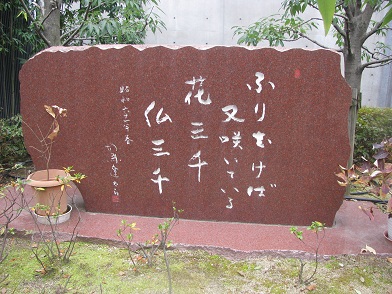 ふりむけば
又咲いている
花三千
仏三千
昭和六十一年春